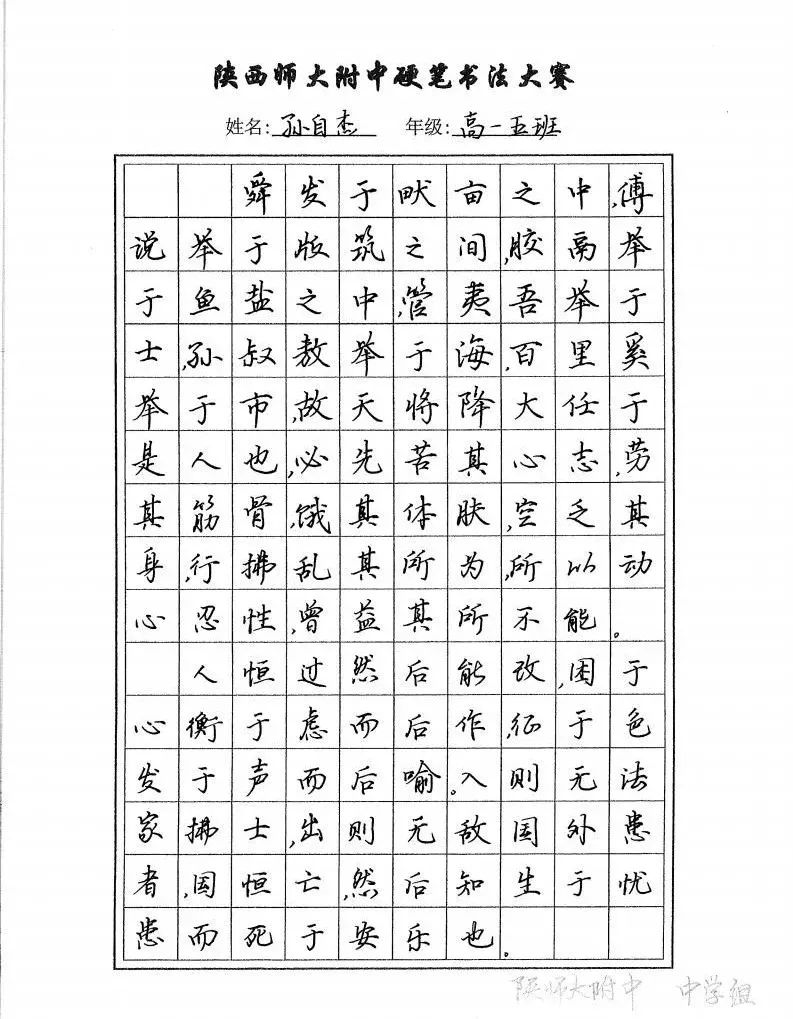 陕西师大附中硬笔书法大赛
姓名：孙自杰 年级：高一五班
舜发于畎亩之中，傅
说举于版筑之间，胶鬲举
于鱼盐之中，管夷吾举于
士，孙叔敖举于海，百里奚
举于市，故天将降大任于
是人也，必先苦其心志，劳
其筋骨，饿其体肤，空乏其
身，行拂乱其所为，所以动
心忍性，曾益其所不能。
人恒过然后能改，困于
心衡于虑而后作，征于色
发于声而后喻。入则无法
家拂士，出则无敌国外患
者，国恒亡，然后知生于忧
患而死于安乐也。
陕师大附中 中学组